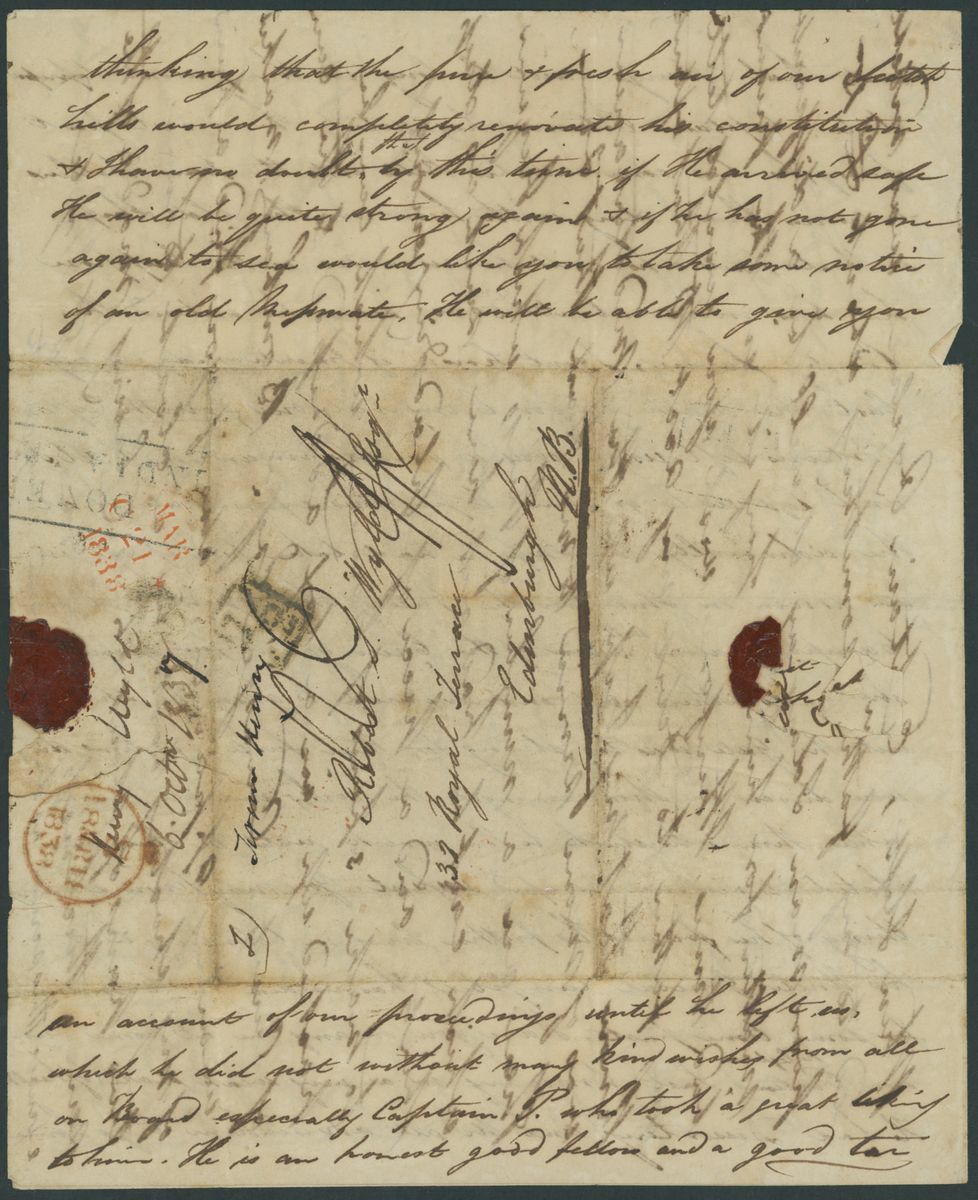 thinking that the pure & fresh air of our Scotch
hills would completely renovate his constitution
& I have no doubt that by this time if He arrived safe
He will be quite strong again & if he has not gone
again to sea would like you to take some notice
of an old Messmate, He will be able to give you
Robert S. Wyld Esqr
32 Royal Terrace
Edinburgh
N.B.
From Henry
Henry Wyld
6 Octr 1837
MAR
21
1838
18 MR 18
1838
an account of our proceedings until he left us.
which he did not without many kind wishes from all
on Board especially Captain P. who took a great liking
to him. He is an honest good fellow and a good tar